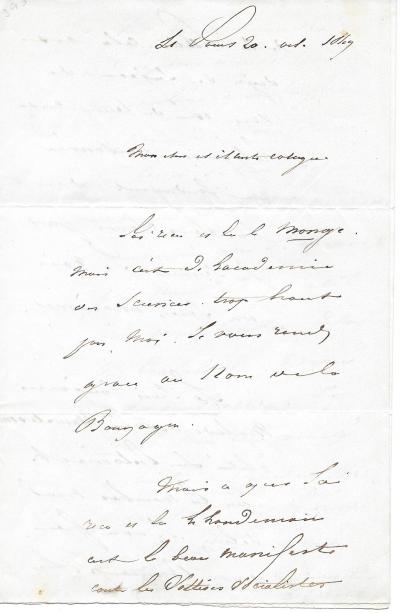 Paris 20. oct. 1849
Mon cher et illustre collègue
J'ai reçu et lu le Monge.
mais c'est de l'académie
des Sciences. trop haut
pour moi. Je vous rends
grace au nom de la
Bourgogne.
Mais ce que j'ai
reçu et lu le lendemain
c'est le beau manifeste
contre les Sottises Socialistes